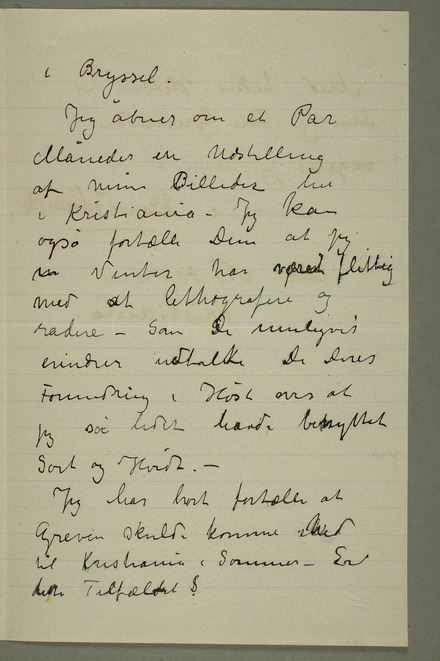 i Bryssel.
Jeg åbner om et Par
Måneder en Udstilling
af mine Billeder her
i Kristiania – Jeg kan
også fortælle Dem at jeg
i Vinter har været flittig
med at lithografere og
radere – Som De muligvis
erindrer udtalte De Deres
Forundring i Høst over at
jeg så lidet havde benyttet
Sort og Hvidt. –
Jeg har hørt fortælle at
Greven skulde komme ned
til Kristiania i Sommer – Er
Tilfældet ?